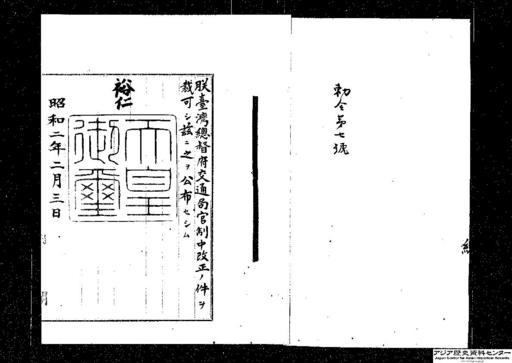 勅令第七號
朕臺灣總督府交通局官制中改正ノ件ヲ
裁可シ茲ニ之ヲ公布セシム
裕仁
天皇
御璽
昭和二年二月三日
アジア歴史資料センター
Japan Center for Asian Historical Records